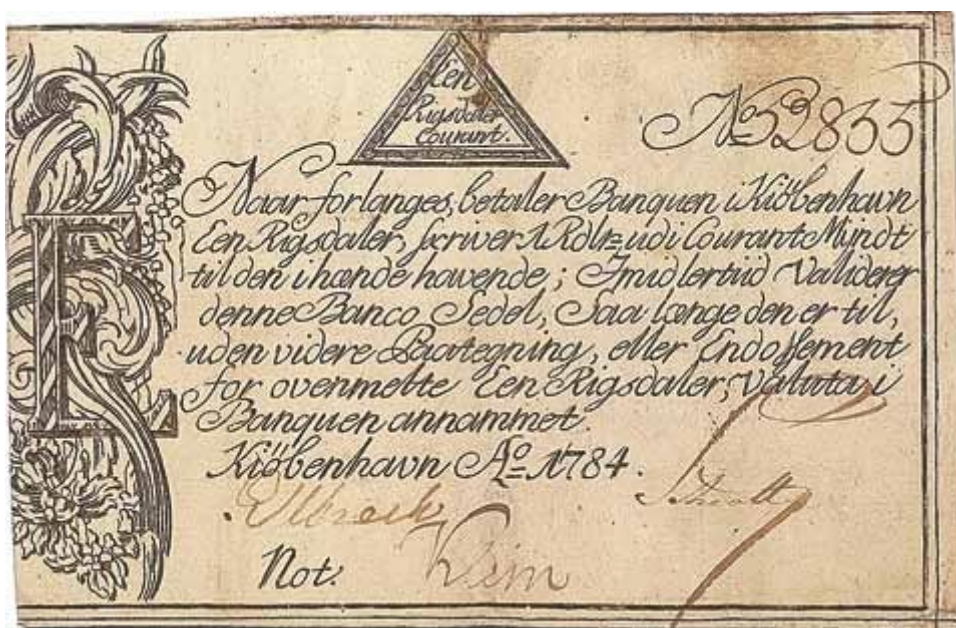 Een
Rigsdaler
Courant.
No 52855
Naar forlanges, betaler Banquen i Kiöbenhavn
Een Rigsdaler, skriver 1 Rdlr udi Courant Myndt
til den i hænde havende; Imidlertiid validerer
denne Banco Sedel, Saa længe den er til,
uden videre Paategning, eller Endossement
for ovenmelte Een Rigsdaler, Valuta i
Banquen annammet.
Kiöbenhavn Ao 1784.
Not: